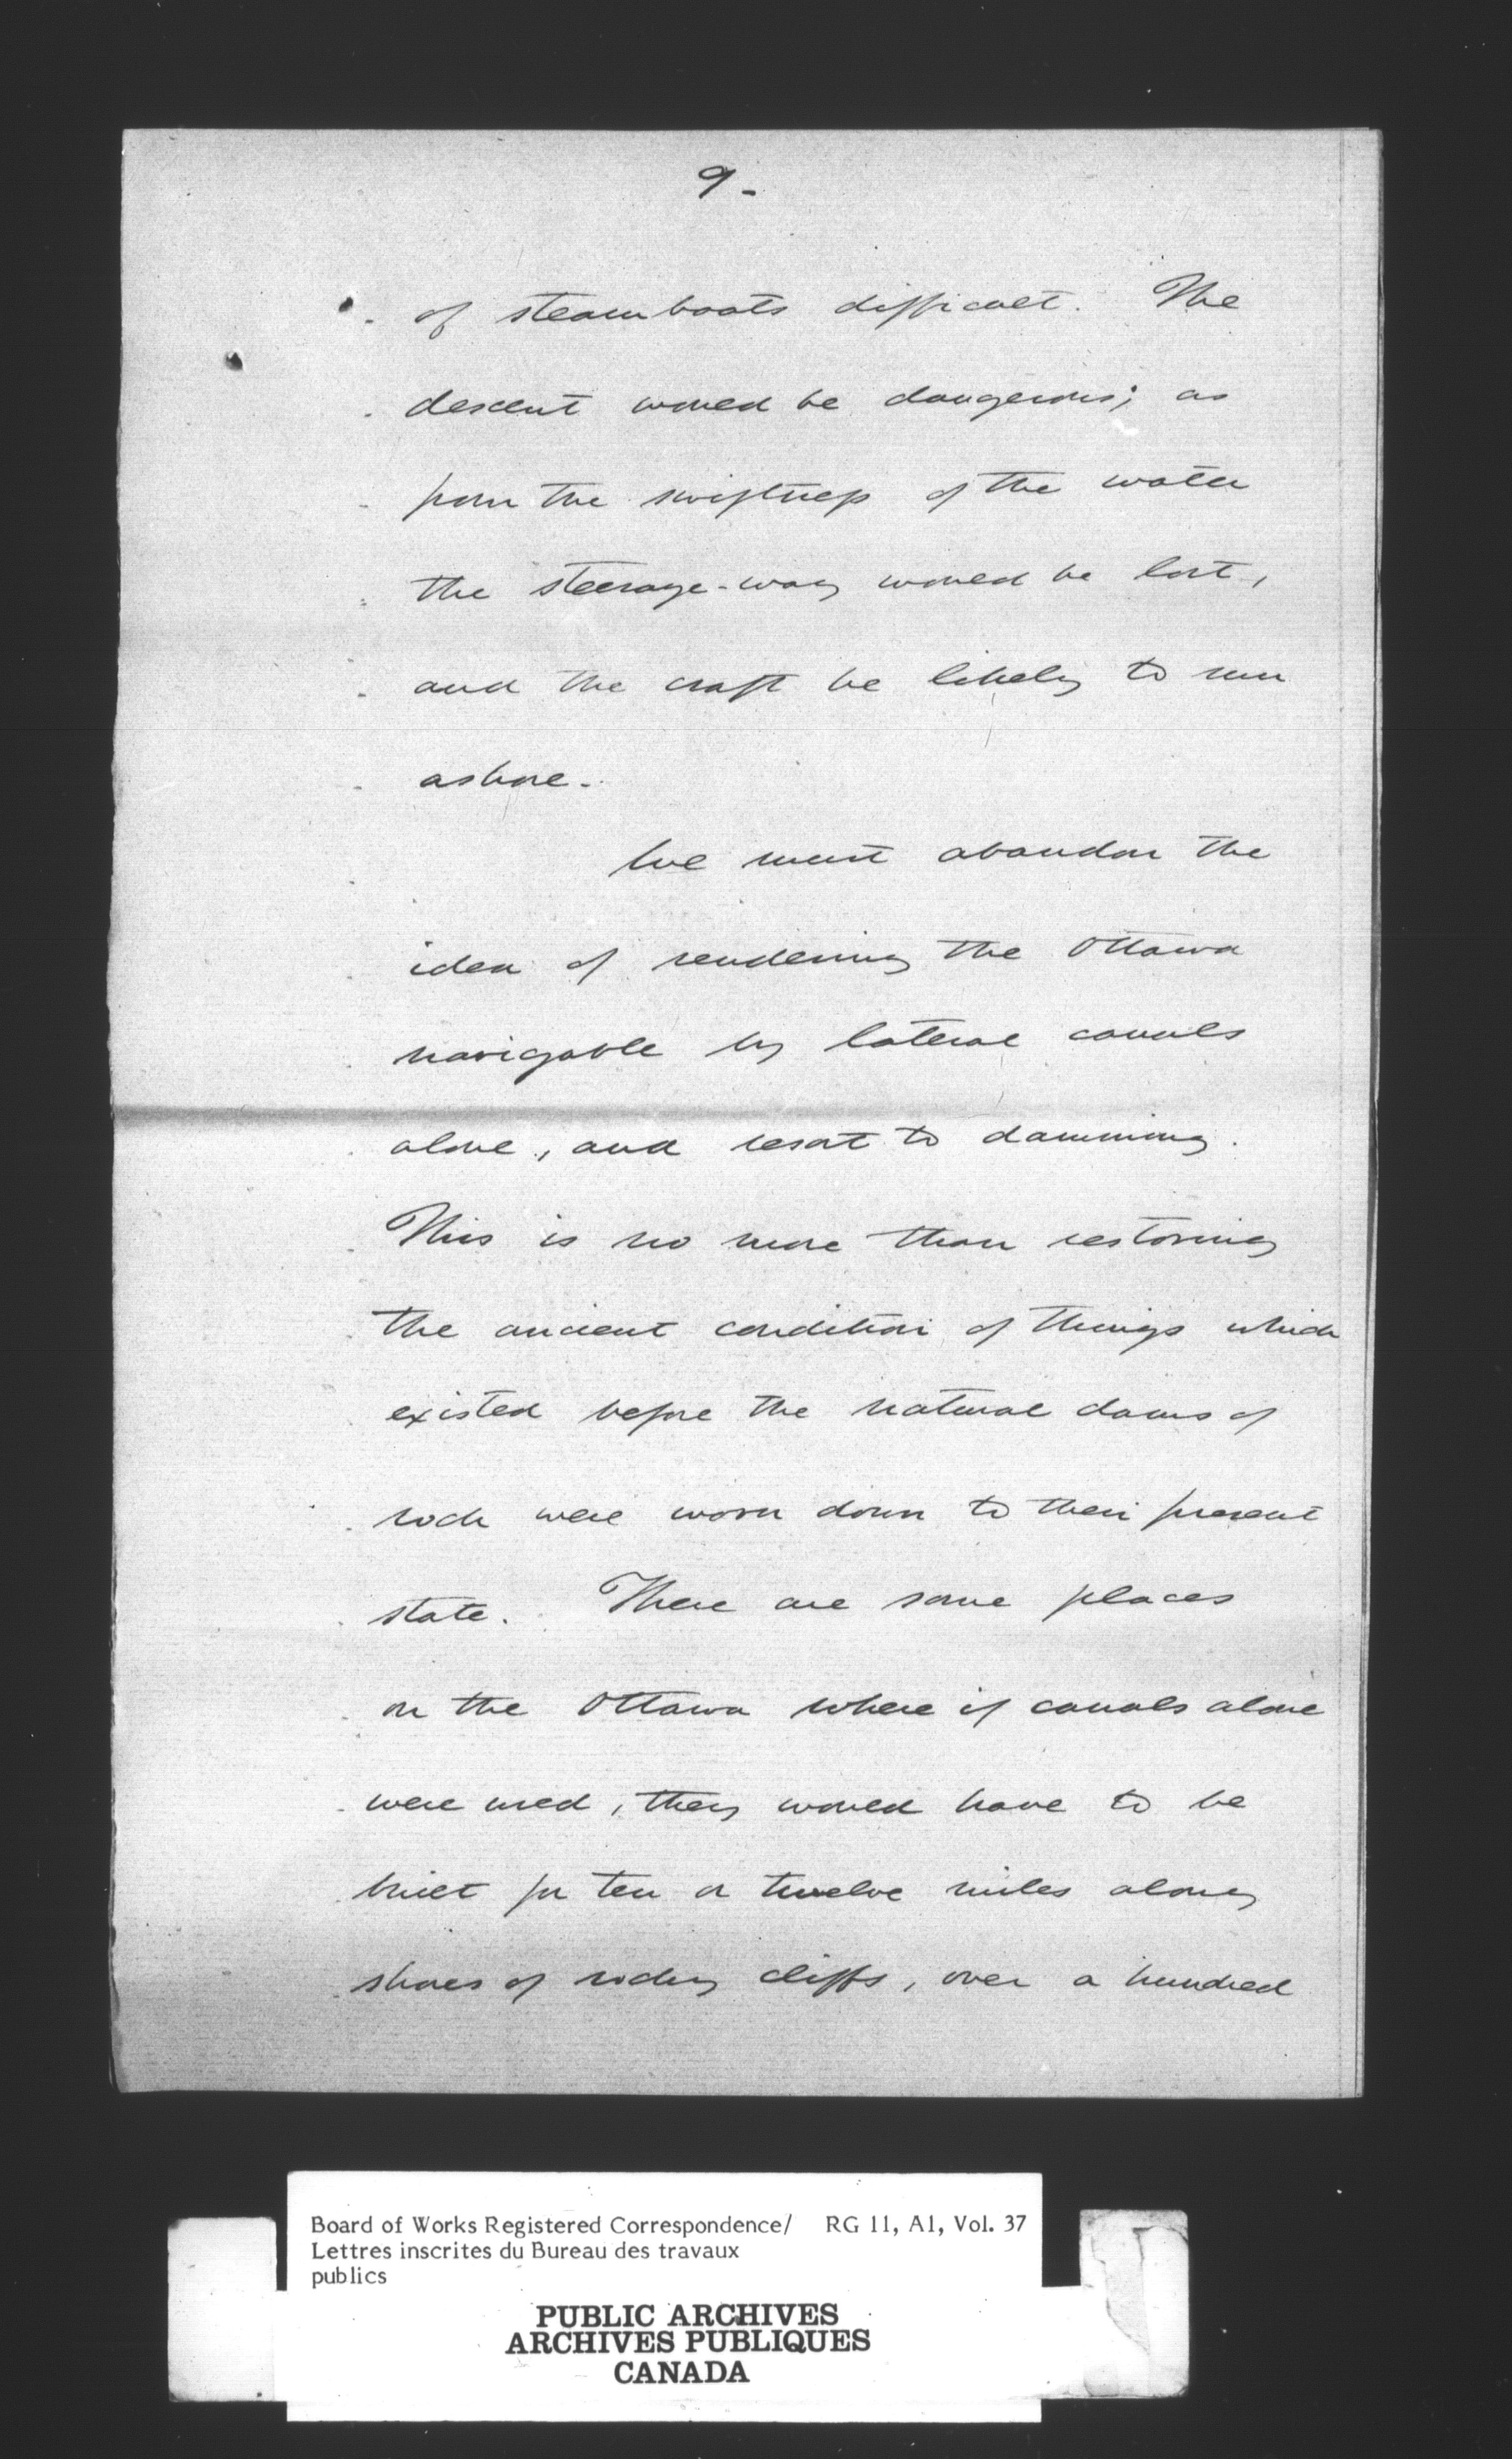 9-
of steamboats difficult. The
descent would be dangerous; as
from the swiftness of the water
the steerage-way would be lost,
and the craft be likely to run
ashore.
We must abandon the
idea of rendering the Ottawa
navigable by lateral canals
alone, and resort to damming.
This is no more than restoring
the ancient condition of things which
existed before the natural dams of
rock were worn down to their present
state. There are some places
on the Ottawa where if canals alone
were used, they would have to be
built for ten or twelve miles along
shores of rocky cliffs, over a hundred
Board of Works Registered Correspondence/ RG 11, A1, Vol. 37
Lettres inscrites du Bureau des travaux
publics
PUBLIC ARCHIVES
ARCHIVES PUBLIQUES
CANADA